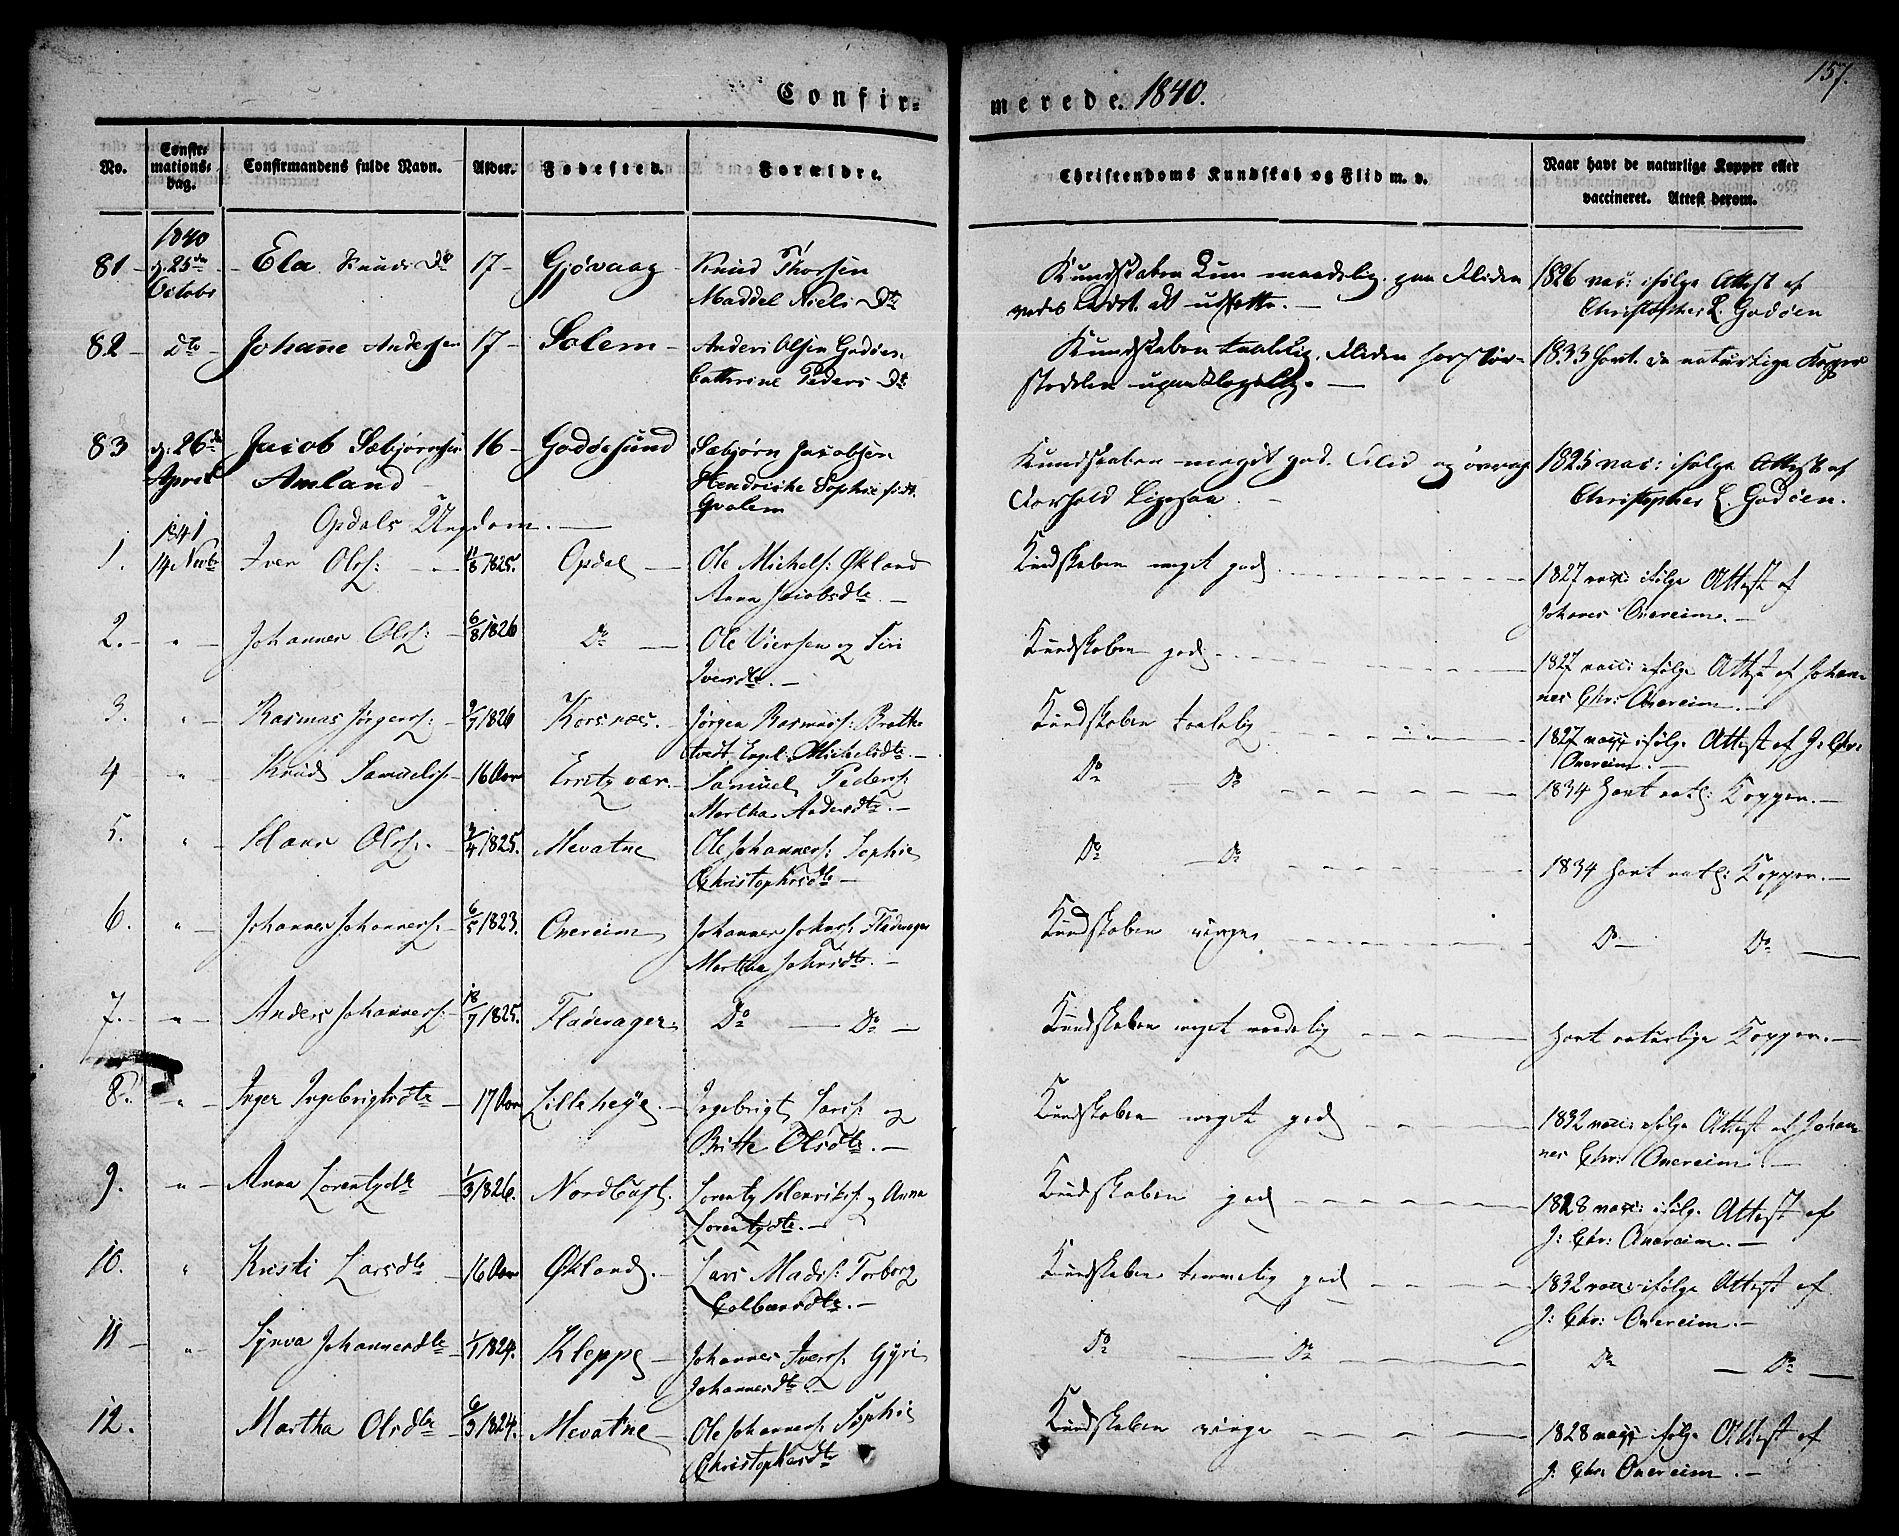 157.
Confirmerede. 1840.
No. Confirmationsdag. Confirmandens fulde Navn. Alder. Fødested. Forældre. Christendoms Kundskab og Flid m. v. Naar havt de naturlige Kopper eller vaccineret. Attest derom.
1840
81 - d. 25de Octobr - Ela Knuds Dtr 17 - Gjøvaag - Knud Thorsen
Maddel Niels Dtr
Kundskaben kun maadelig, paa Fliden
1826 vac: ifølge Attest af
Christopher L. Godøen
82 - Dto - Johanne Anders 17 - Solem - Anders Olsen Godøen
Cathrine Peders Dtr
Kundskaben taalelig, Fliden
upaaklagelig. -
1833 havt de naturlige Kopper
83 d. 26de April Jacob Sæbjørnsen 16 - Godøesund Sæbjørn Jacobsen
Amland Hendricke Sophie
Qvalem
Kundskaben meget god. Flid og øvrige
Forhold Ligesaa. -
1825 vac: ifølge Attest af
Christopher L. Godøen.
Opdals Ungdom. -
1841
1. 14 Novbr Iver Ols: 11/8 1825. Opdal - Ole Michels: Økland
Anna Jacobsdtr. -
Kundskaben meget god
1827 vacc: ifølge Attest af
Johanes Onereim. -
2. - " - Johannes Ols: - 6/8 1826 Do - Ole Iversen og Siri
Iversdtr. -
Kundskaben god
1827 vacc: ifølge Attest af Johan-
nes Chr: Onereim. -
3. " - Rasmus Jørgens: 9/7 1826 Korsnæs. - Jørgen Rasmuss:
Engel: Michelsdtr. -
Kundskaben taalelig
1827 vacc: ifølge Attest af J: Chr:
Onereim. -
4 " - Knud Samuels: 16 Aar Samuel Peders:
Martha Andersdtr. -
Do - Do
1834 havt natl: Kopper. -
5. " - Hans Ols: 2/4 1825. Mevatne Ole Johanness: Sophie
Christophersdtr -
Do - Do
1834 havt natl: Kopper. -
6. " - Johannes Johanness: 6/5 1823. Onereim Johannes Johns: Fladeager
Martha Johnsdtr. -
Kundskaben ringe
Do - Do -
7. - " - Anders Johanness: 18/7 1825. Fladeager Do - Do -
Kundskaben meget maadelig
havt naturlige Kopper. -
8. " - Inger Ingebrigtsdtr - 17 Aar Lilleheye. - Ingebrigt Lars: og
Britte Olsdtr. -
Kundskaben meget god
1832 vacc: ifølge Attest af Johan-
nes Chr: Onereim. -
9. " - Anna Lorentzdtr 1/3 1826. Nordhust. Lorentz Henriks: og Anna
Lorentzdtr. -
Kundskaben god
1828 vacc: ifølge Attest af
J: Chr: Onereim. -
10. " Kristi Larsdtr - 16 Aar Økland. - Lars Mads: Torborg
Colbensdtr. -
Kundskaben temmelig god
1832 vacc: ifølge Attest af
J: Chr: Onereim. -
11 - " - Synva Johannesdtr - 1/1 1824. Kleppe - Johannes Ivers: Gyri
Johannesdtr -
Do - Do
Do - Do -
12. Martha Olsdtr 6/3 1824. Mevatne - Ole Johanness: Sophie
Christophersdtr
Kundskaben ringe
1828 vacc: ifølge Attest af
J: Chr: Onereim. -